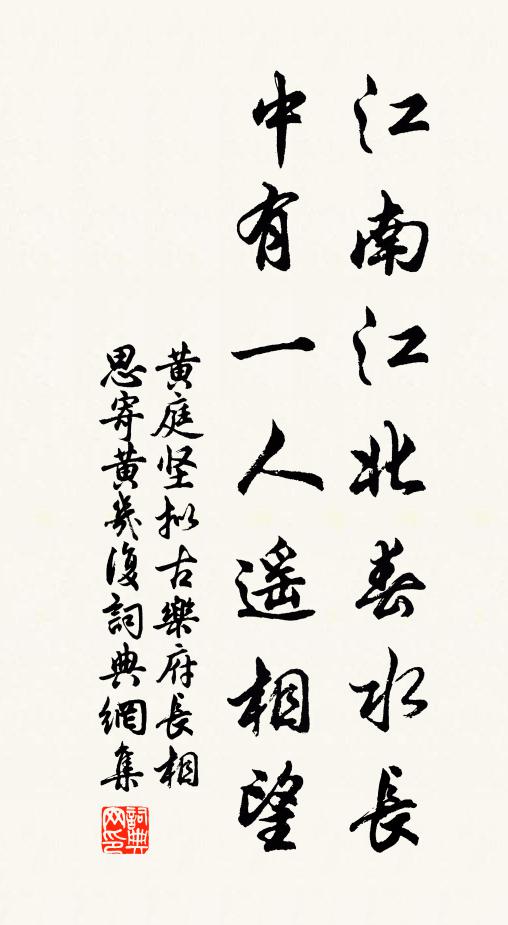 江南江北春水長
中有一人遥相望
黄庭坚拟古樂府長相
思寄黄幾復詞典網集
詞典
网印